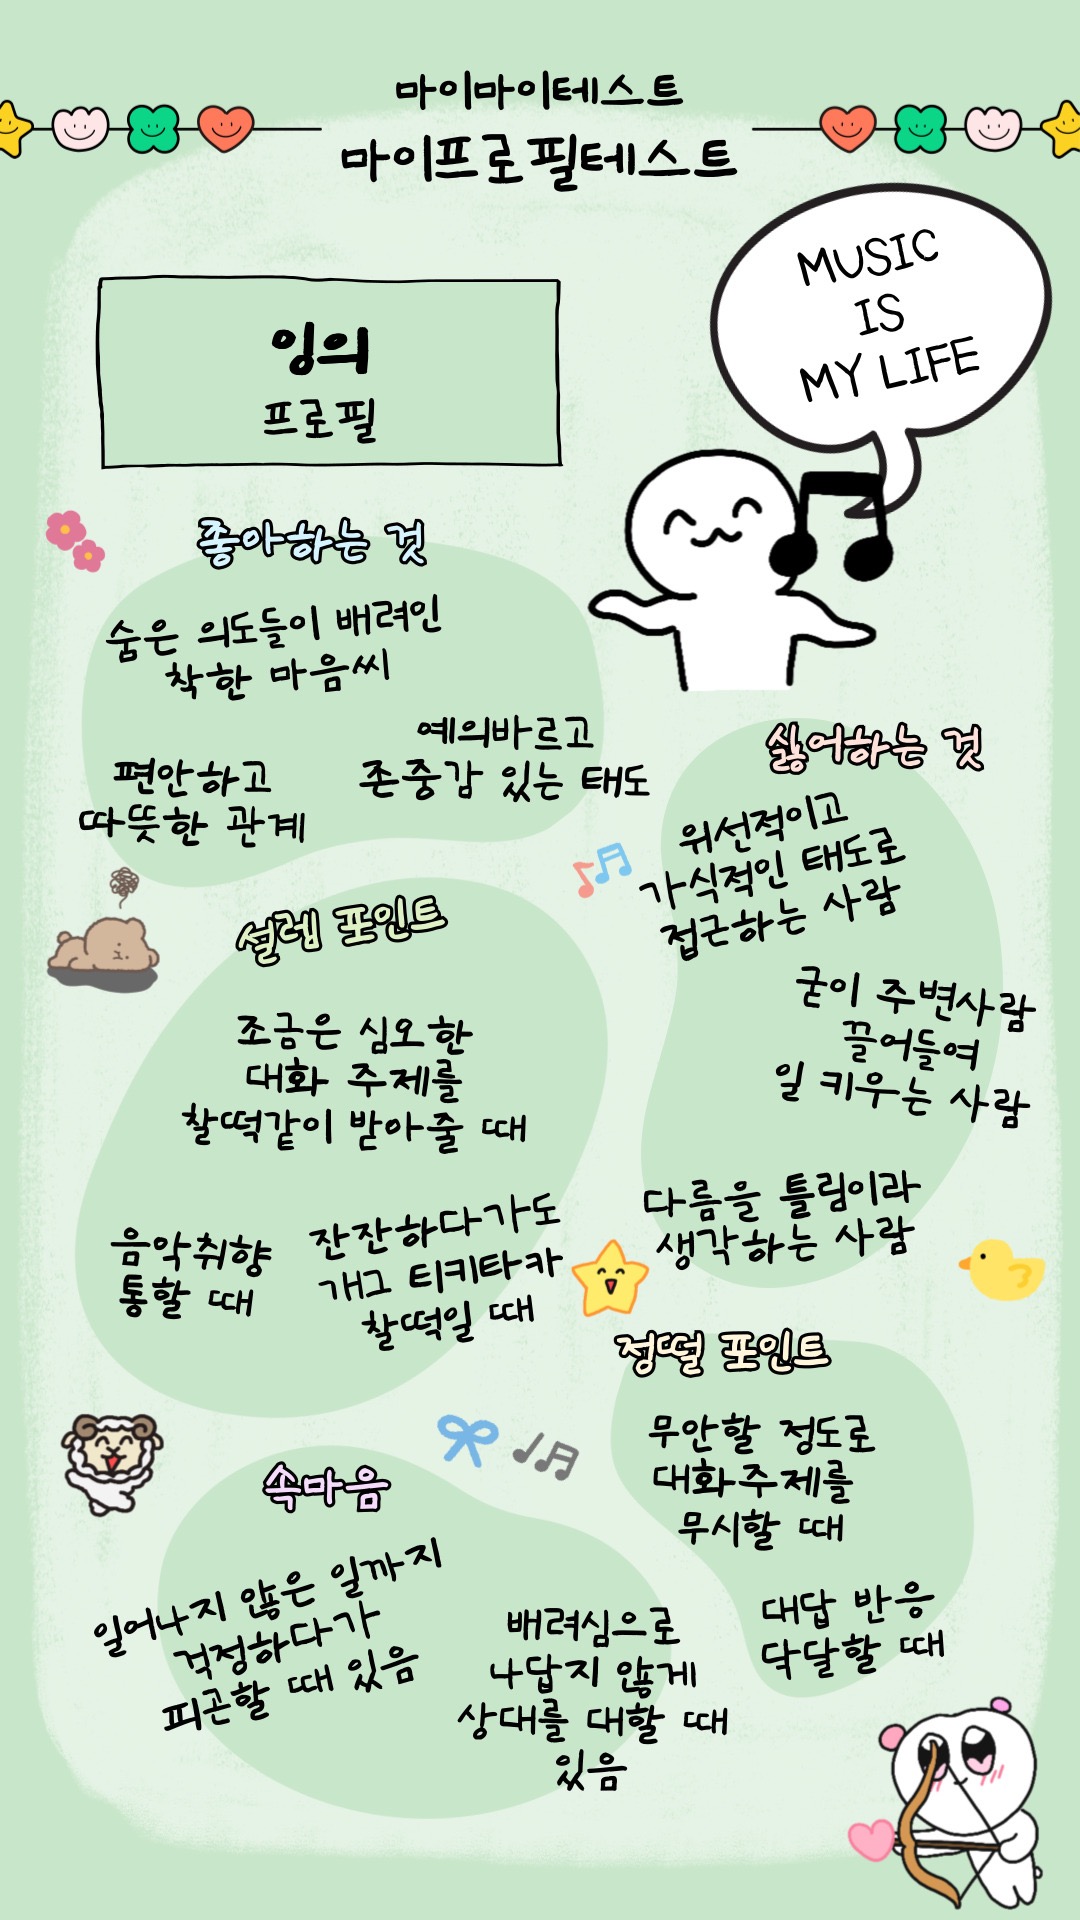 마이마이테스트
마이프로필테스트
MUSIC
IS
MY LIFE
잉의
프로필
좋아하는 것
숨은 의도들이 배려인
착한 마음씨
예의바르고
존중감 있는 태도
편안하고
따뜻한 관계
싫어하는 것
위선적이고
가식적인 태도로
접근하는 사람
굳이 주변사람
끌어들여
일 키우는 사람
다름을 틀림이라
생각하는 사람
설렘 포인트
조금은 심오한
대화 주제를
찰떡같이 받아줄 때
음악취향
통할 때
잔잔하다가도
개그 티키타카
찰떡일 때
정떨 포인트
무안할 정도로
대화주제를
무시할 때
대답 반응
닥달할 때
속마음
일어나지 않은 일까지
걱정하다가
피곤할 때 있음
배려심으로
나답지 않게
상대를 대할 때
있음